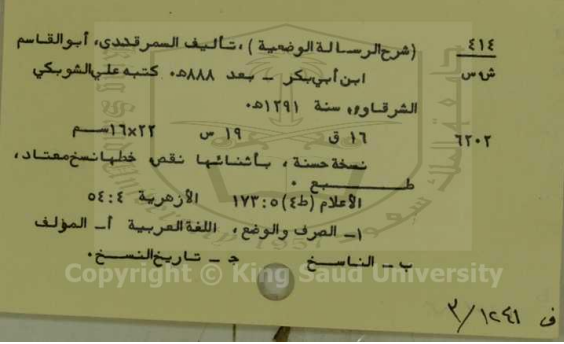 ٤١٤ (شرح الرسالة الوضعية)، تأليف السمرقندي، أبو القاسم
ش س ابن أبي بكر - بعد ٨٨٨هـ. كتبه علي الشوبكي
الشرقاوي سنة ١٢٩١هـ.
٦٢٠٢ ١٦ ق ١٩ س ٢٢×١٦سم
نسخة حسنة، بأثنائها نقص، خطها نسخ معتاد،
طبع.
الأعلام (ط٤) ٥:١٧٣ الأزهرية ٤:٥٤
١- الصرف والوضع، اللغة العربية أ- المؤلف
ب- الناسخ ج- تاريخ النسخ.
Copyright © King Saud University
ف ١٢٤١/٣